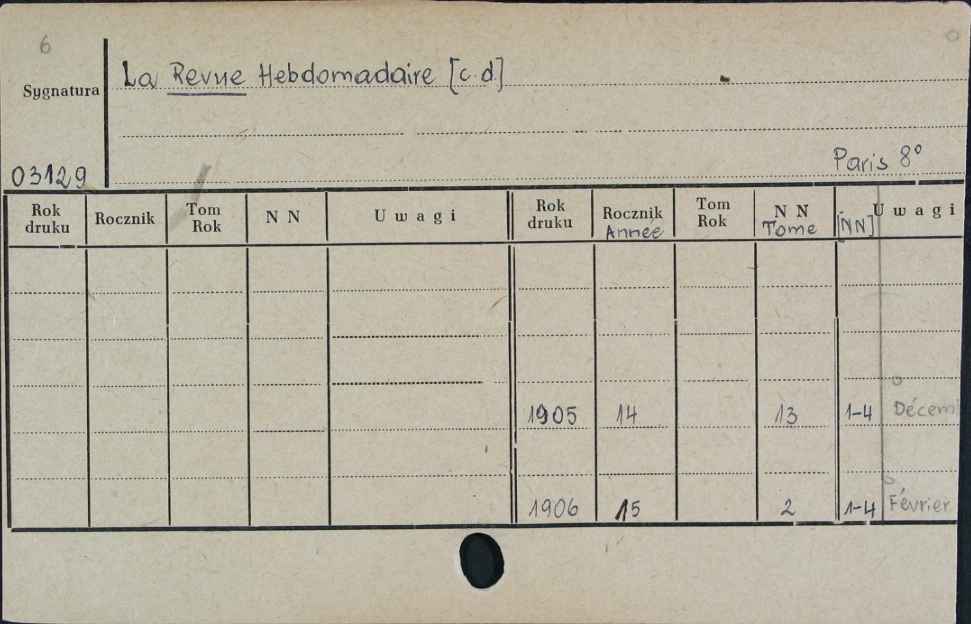 6
La Revue Hebdomadaire [c.d.]
Sygnatura
03129
Paris 8°
Rok druku Rocznik Tom Rok N N Uwagi Rok druku Rocznik Année Tom Rok N N Tome [NN] Uwagi
1905 14 13 1-4 Décem
1906 15 2 1-4 Février